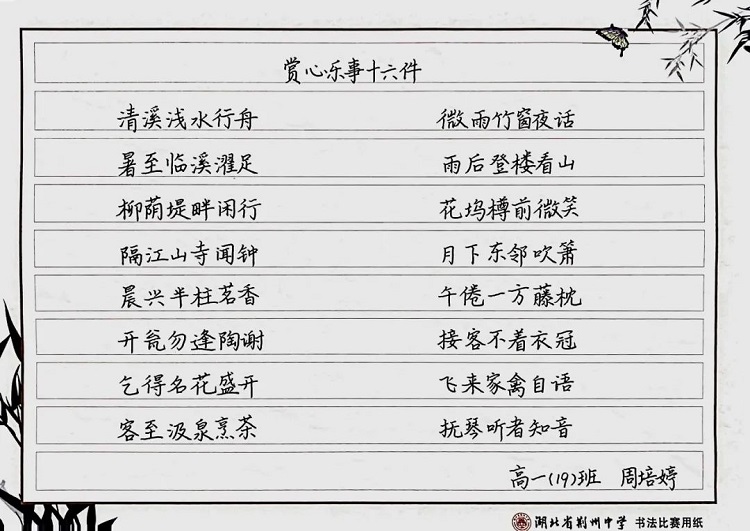 赏心乐事十六件
清溪浅水行舟 微雨竹窗夜话
暑至临溪濯足 雨后登楼看山
柳荫堤畔闲行 花坞樽前微笑
隔江山寺闻钟 月下东邻吹箫
晨兴半柱茗香 午倦一方藤枕
开瓮勿逢陶谢 接客不着衣冠
乞得名花盛开 飞来家禽自语
客至汲泉烹茶 抚琴听者知音
高一(19)班 周培婷
湖北省荆州中学 书法比赛用纸